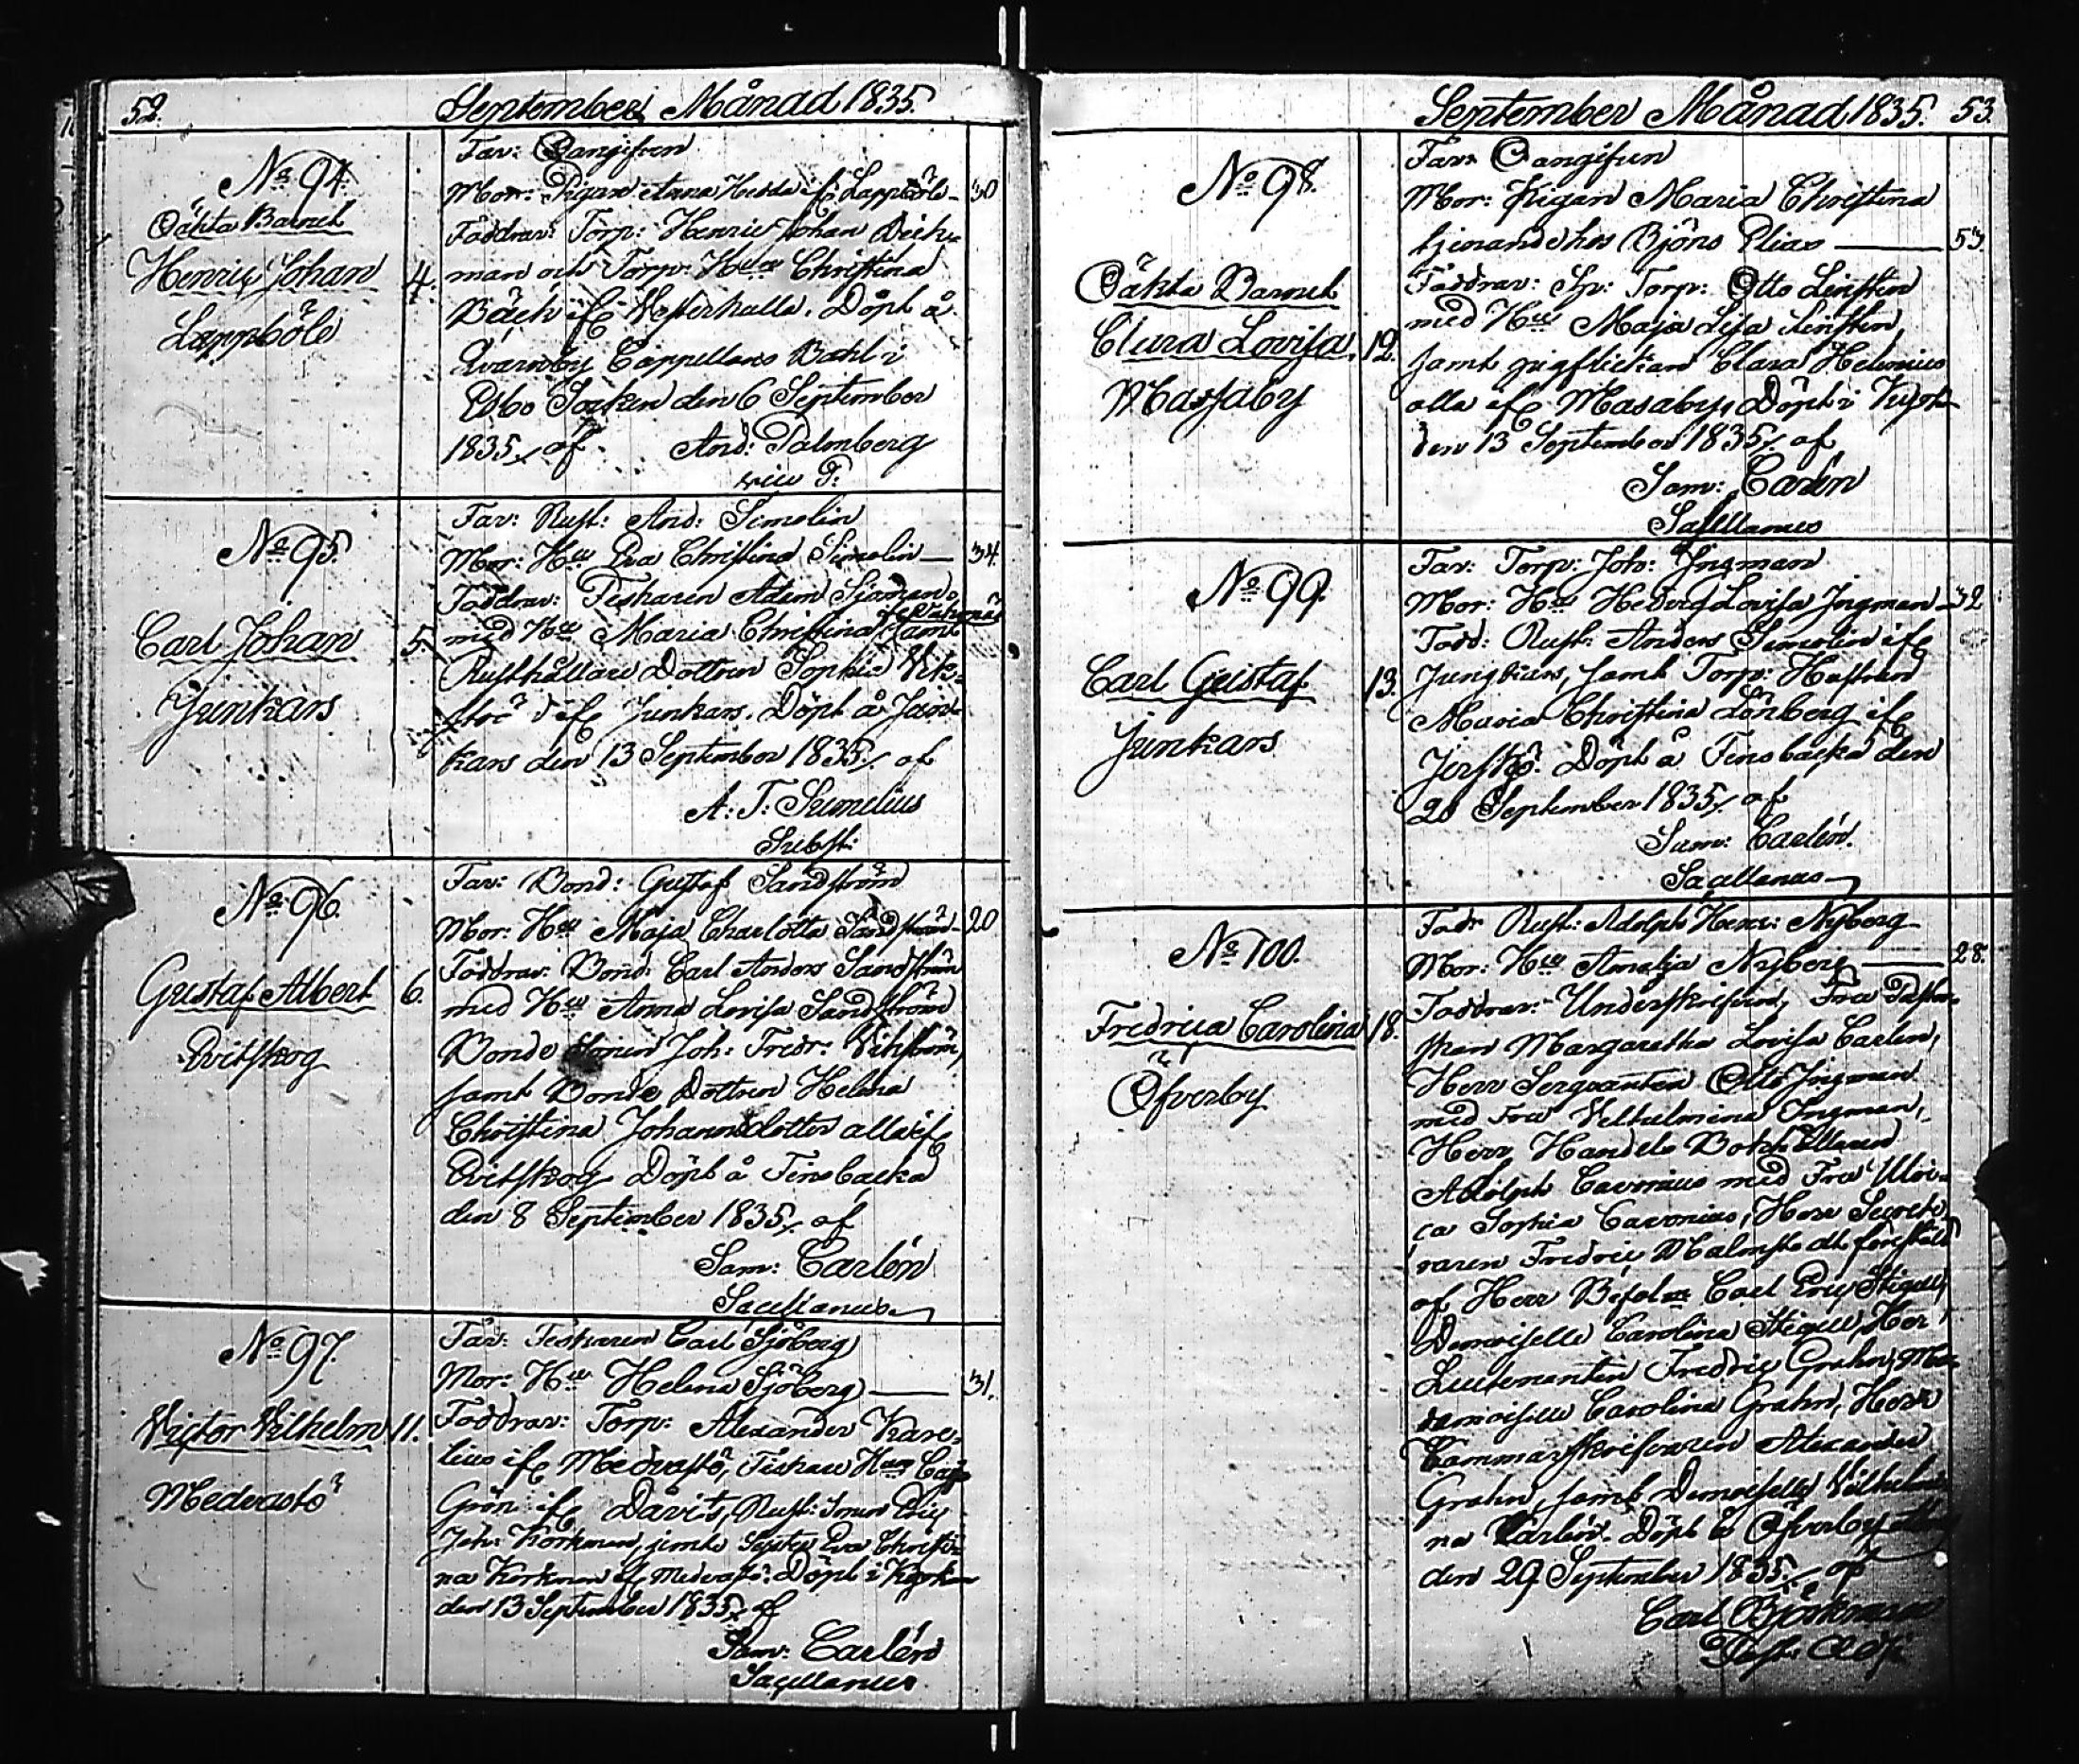 52. September Månad 1835.
No 94.
Oäkta Barnet
Henric Johan
Lappböle
4.
Far: Oangifven
Mor: Pigan Anna Hedda ifr Lappböle - 30
Faddrar: Torp: Henric Johan Dick-
man och Torp: Hustru Christina
Bäck ifr Westerkulla. Döpt å
Qvarnby Cappellans Bohl i
Esbo Socken den 6 September
1835, af And: Palmberg
vice P.
No 95.
Carl Johan
Junkars
5.
Far: Rust: And: Simolin
Mor: Hu Eva Christina Simolin — 34.
Faddrar: Fiskaren Adam Sjöman
med Hu Maria Christina samt
Rusthållare Dottren Sophia Wik-
ström ifr Junkars. Döpt å Jun-
kars den 13 September 1835, af
A: F: Sumelius
Subst:
No 96.
Gustaf Albert
Evitskog
6.
Far: Bond: Gustaf Sandström
Mor: Hu Maja Charlotta Sandström - 20
Faddrar: Bond: Carl Anders Sandström
med Hu Anna Lovisa Sandström
Bonde Joh: Fredr: Vikström,
samt Bonde Dottren Helena
Christina Johansdotter alla ifr
Evitskog Döpt å Finsbacka
den 8 September 1835, af
Sam: Carlén
Sacellanus
No 97.
Victor Vilhelm
Medvastö
11.
Far: Fiskaren Carl Sjöberg
Mor: Hu Helena Sjöberg — 31.
Faddrar: Torp: Alexander Kare-
lius ifr Medvastö, Fiskare Hun Cajsa
Grön ifr Davits, Rust: Sonen Eric
Joh: Korkman, jemte Syster Eva Christi-
na Korkman af Medvastö. Döpt i Kyrkan
den 13 September 1835, af
Sam: Carlén
Sacellanus
September Månad 1835. 53.
No 98.
Oäkta Barnet
Clara Lovisa
Massaby
12.
Far: Oangifven
Mor: Pigan Maria Christina
tjenande hos Björs Elias — 53.
Faddrar: Sp: Torp: Otto Linsten
med Hu Maja Lisa Linsten,
samt pigflickan Clara Helenius
alla ifr Masaby, Döpt i Kyrk
den 13 September 1835, af
Sam: Carlén
Sacellanus
No 99.
Carl Gustaf
Junkars
13.
Far: Torp: Joh: Ingman
Mor: Hu Hedvig Lovisa Ingman - 32
Fadd: Rust: Anders Simolin ifr
Junckars, samt Torp: Hustrun
Maria Christina Lönberg ifr
Döpt å Finsbacka den
20 September 1835, af
Sam: Carlén.
Sacellanus
No 100.
Fredrica Carolina
Öfverby
18.
Fadr Rust: Adolph Henr: Nyberg
Mor: Hu Amalja Nyberg — 28.
Faddrar: Underskrifven, Fru Pastor-
skan Margaretha Lovisa Carlén,
Herr Sergeanten Otto Ingman
med Fru Vilhelmina Ingman,
Herr Handels Bokhållaren
Adolph Cavonius med Fru Ulri-
ca Sophia Cavonius, Herr Secrete-
raren Fredric Malmstedt föreställd
af Herr Befaln Carl Eric Stigell,
Demoiselle Carolina Stigell, Herr
Lieutenanten Fredric Grahn, Ma-
damoiselle Carolina Grahn, Herr
Cammarskrifvaren Alexander
Grahn, samt Demoiselle Vilhelmi-
na Carlén. Döpt å Öfverby
den 29 September 1835, af
Carl Björkman
Past: Adj: